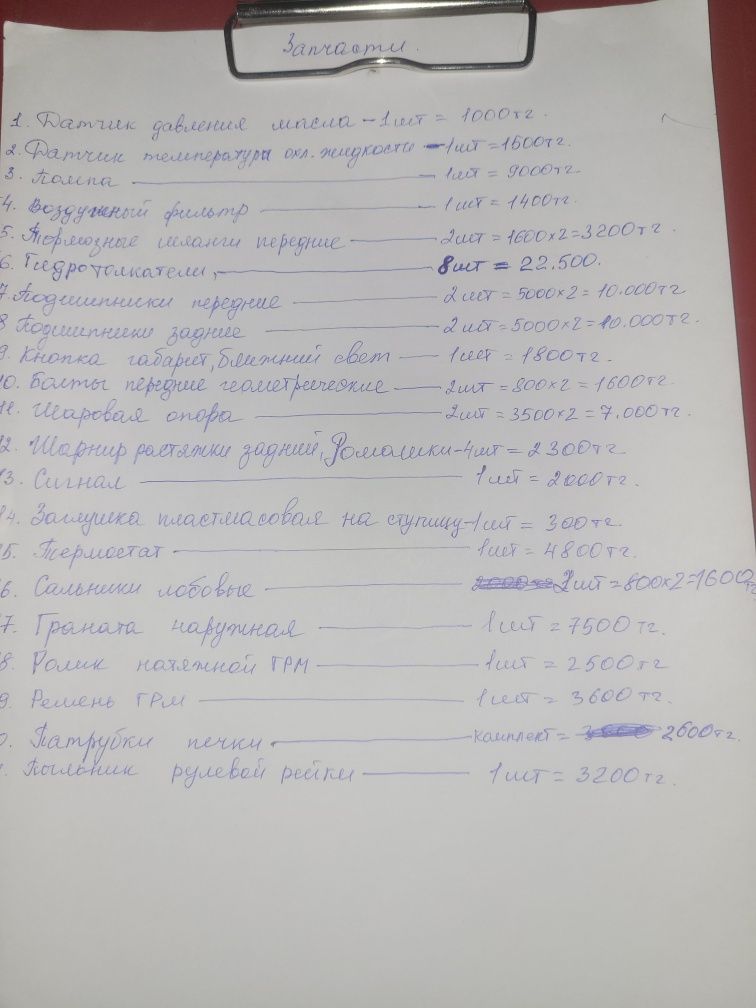 Запчасти.
1. Датчик давления масла - 1шт = 1000тг.
2. Датчик температуры охл. жидкости - 1шт = 1500тг.
3. Помпа 1шт = 9000тг.
4. Воздушный фильтр 1шт = 1400тг.
5. Тормозные шланги передние 2шт = 1600×2=3200тг.
6. Гидротолкатели, 8шт = 22.500.
7. Подшипники передние 2шт = 5000×2 = 10.000тг
8 Подшипники задние 2шт = 5000×2 = 10.000тг.
9. Кнопка габарит, ближний свет 1шт = 1800тг.
10. Болты передние геометрические 2шт = 800×2 = 1600тг.
11. Шаровая опора 2шт = 3500×2 = 7.000тг.
12. Шарнир растяжки задний, Ромашки - 4шт = 2300тг
13. Сигнал 1шт = 2000тг.
14. Заглушка пластмасовая на ступицу - 1шт = 300тг.
15. Термостат 1шт = 4800тг.
6. Сальники лобовые 2шт = 800×2=1600тг
7. Граната наружная 1шт = 7500тг.
8. Ролик натяжной ГРМ 1шт = 2500тг
9. Ремень ГРМ 1шт = 3600тг.
0. Патрубки печки комплект = 2600тг.
. Пыльник рулевой рейки 1шт = 3200тг.